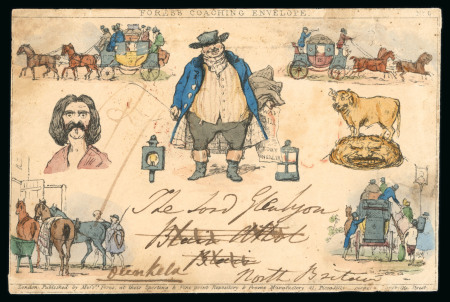 FORES'S COACHING ENVELOPE.
The Lord Glenlyon
Blair Athol
Blair
Dunkeld
North Britain
London. Published by Mess.rs Fores, at their Sporting & Fine print Repository & Frame Manufactory 41, Piccadilly